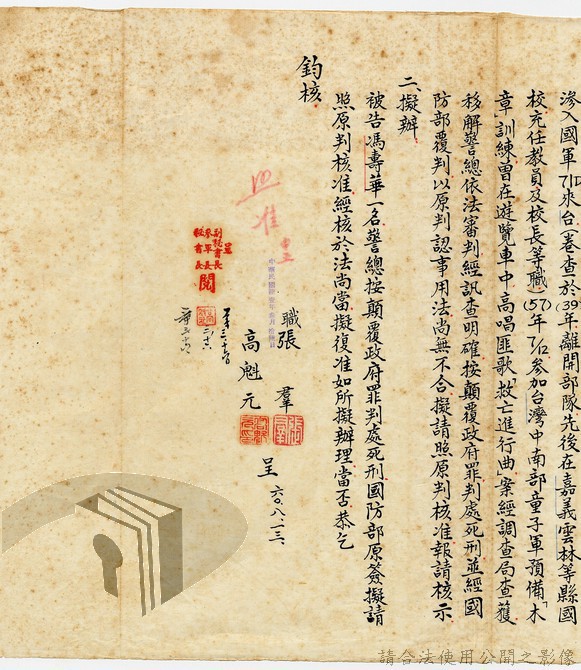 滲入國軍7/12來台（卷查於(39)年離開部隊先後在嘉義雲林等縣國
校充任教員及校長等職）(57)年7/12參加台灣中南部童子軍預備「木
章」訓練曾在遊覽車中高唱匪歌「救亡進行曲」案經調查局查獲
移解警總依法審判經訊查明確按顛覆政府罪判處死刑並經國
防部覆判以原判認事用法尚無不合擬請照原判核准報請核示
二、擬辦
被告馮壽華一名警總按顛覆政府罪判處死刑國防部原簽擬請
照原判核准經核於法尚當擬復准如所擬辦理當否恭乞
鈞核
職張 羣
高魁元
呈 六〇、八、一三、
照准
呈
副秘書長
參軍長
秘書長
閱
請合法使用公開之影像